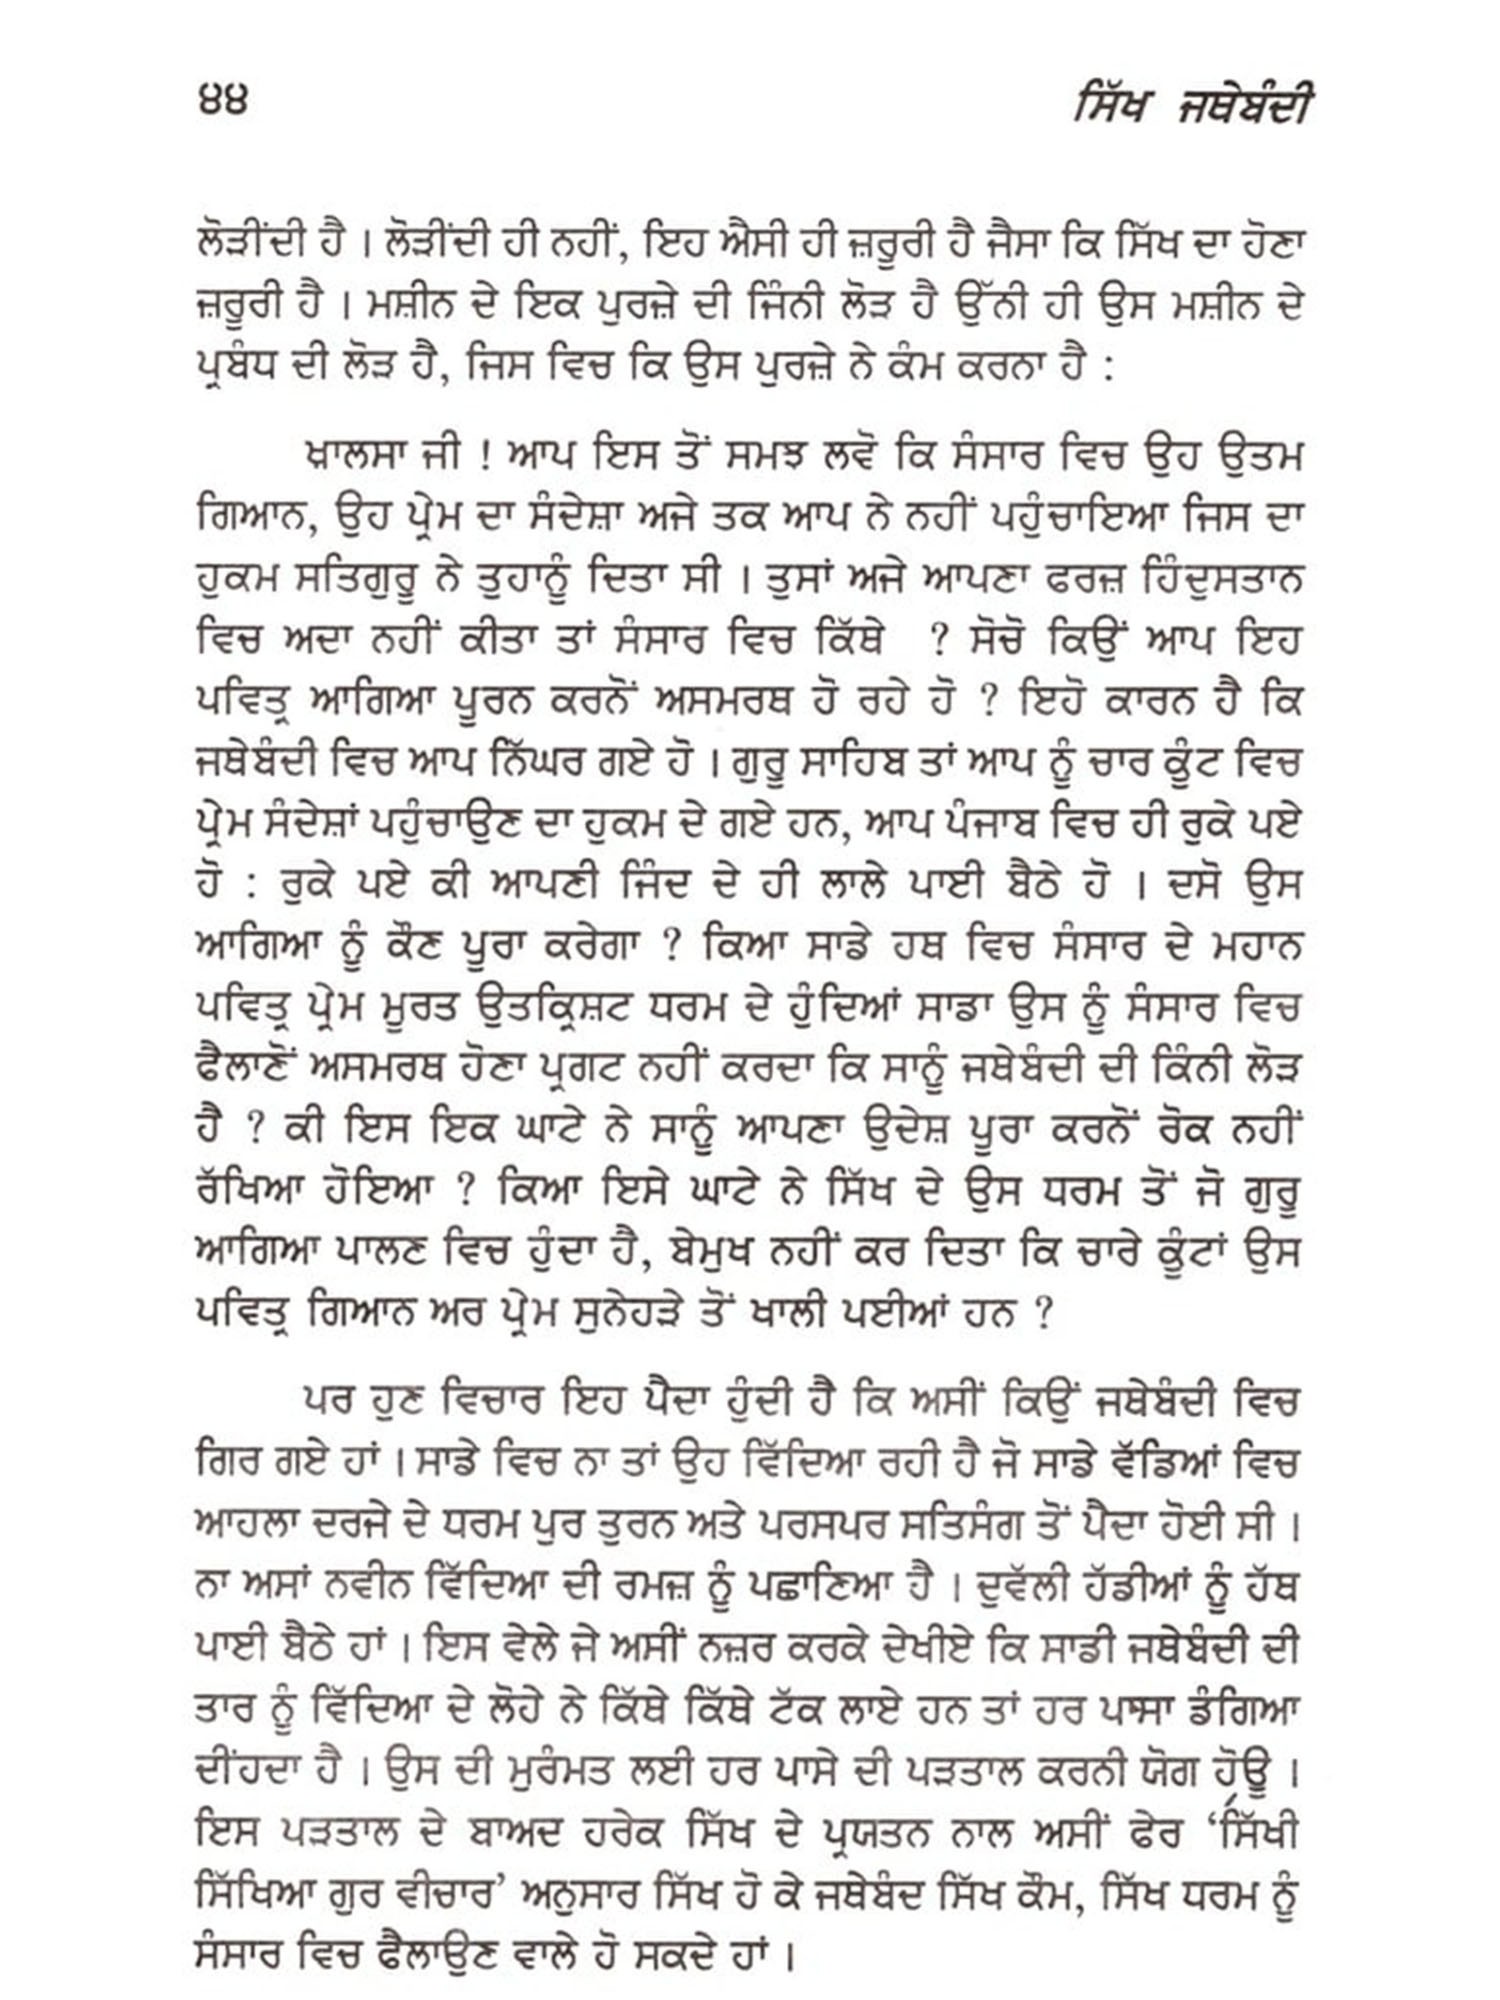 ੪੪ ਸਿੱਖ ਜਥੇਬੰਦੀ
ਲੋੜੀਂਦੀ ਹੈ । ਲੋੜੀਂਦੀ ਹੀ ਨਹੀਂ, ਇਹ ਐਸੀ ਹੀ ਜ਼ਰੂਰੀ ਹੈ ਜੈਸਾ ਕਿ ਸਿੱਖ ਦਾ ਹੋਣਾ
ਜ਼ਰੂਰੀ ਹੈ । ਮਸ਼ੀਨ ਦੇ ਇਕ ਪੁਰਜ਼ੇ ਦੀ ਜਿੰਨੀ ਲੋੜ ਹੈ ਉੱਨੀ ਹੀ ਉਸ ਮਸ਼ੀਨ ਦੇ
ਪ੍ਰਬੰਧ ਦੀ ਲੋੜ ਹੈ, ਜਿਸ ਵਿਚ ਕਿ ਉਸ ਪੁਰਜ਼ੇ ਨੇ ਕੰਮ ਕਰਨਾ ਹੈ :
ਖ਼ਾਲਸਾ ਜੀ ! ਆਪ ਇਸ ਤੋਂ ਸਮਝ ਲਵੋ ਕਿ ਸੰਸਾਰ ਵਿਚ ਉਹ ਉਤਮ
ਗਿਆਨ, ਉਹ ਪ੍ਰੇਮ ਦਾ ਸੰਦੇਸ਼ਾ ਅਜੇ ਤਕ ਆਪ ਨੇ ਨਹੀਂ ਪਹੁੰਚਾਇਆ ਜਿਸ ਦਾ
ਹੁਕਮ ਸਤਿਗੁਰੂ ਨੇ ਤੁਹਾਨੂੰ ਦਿਤਾ ਸੀ । ਤੁਸਾਂ ਅਜੇ ਆਪਣਾ ਫਰਜ਼ ਹਿੰਦੁਸਤਾਨ
ਵਿਚ ਅਦਾ ਨਹੀਂ ਕੀਤਾ ਤਾਂ ਸੰਸਾਰ ਵਿਚ ਕਿੱਥੇ ? ਸੋਚੋ ਕਿਉਂ ਆਪ ਇਹ
ਪਵਿਤ੍ਰ ਆਗਿਆ ਪੂਰਨ ਕਰਨੋਂ ਅਸਮਰਥ ਹੋ ਰਹੇ ਹੋ ? ਇਹੋ ਕਾਰਨ ਹੈ ਕਿ
ਜਥੇਬੰਦੀ ਵਿਚ ਆਪ ਨਿੱਘਰ ਗਏ ਹੋ । ਗੁਰੂ ਸਾਹਿਬ ਤਾਂ ਆਪ ਨੂੰ ਚਾਰ ਕੁੰਟ ਵਿਚ
ਪ੍ਰੇਮ ਸੰਦੇਸ਼ਾਂ ਪਹੁੰਚਾਉਣ ਦਾ ਹੁਕਮ ਦੇ ਗਏ ਹਨ, ਆਪ ਪੰਜਾਬ ਵਿਚ ਹੀ ਰੁਕੇ ਪਏ
ਹੋ : ਰੁਕੇ ਪਏ ਕੀ ਆਪਣੀ ਜਿੰਦ ਦੇ ਹੀ ਲਾਲੇ ਪਾਈ ਬੈਠੇ ਹੋ । ਦਸੋ ਉਸ
ਆਗਿਆ ਨੂੰ ਕੌਣ ਪੂਰਾ ਕਰੇਗਾ ? ਕਿਆ ਸਾਡੇ ਹਥ ਵਿਚ ਸੰਸਾਰ ਦੇ ਮਹਾਨ
ਪਵਿਤ੍ਰ ਪ੍ਰੇਮ ਮੂਰਤ ਉਤਕ੍ਰਿਸ਼ਟ ਧਰਮ ਦੇ ਹੁੰਦਿਆਂ ਸਾਡਾ ਉਸ ਨੂੰ ਸੰਸਾਰ ਵਿਚ
ਫੈਲਾਣੋਂ ਅਸਮਰਥ ਹੋਣਾ ਪ੍ਰਗਟ ਨਹੀਂ ਕਰਦਾ ਕਿ ਸਾਨੂੰ ਜਥੇਬੰਦੀ ਦੀ ਕਿੰਨੀ ਲੋੜ
ਹੈ ? ਕੀ ਇਸ ਇਕ ਘਾਟੇ ਨੇ ਸਾਨੂੰ ਆਪਣਾ ਉਦੇਸ਼ ਪੂਰਾ ਕਰਨੋਂ ਰੋਕ ਨਹੀਂ
ਰੱਖਿਆ ਹੋਇਆ ? ਕਿਆ ਇਸੇ ਘਾਟੇ ਨੇ ਸਿੱਖ ਦੇ ਉਸ ਧਰਮ ਤੋਂ ਜੋ ਗੁਰੂ
ਆਗਿਆ ਪਾਲਣ ਵਿਚ ਹੁੰਦਾ ਹੈ, ਬੇਮੁਖ ਨਹੀਂ ਕਰ ਦਿਤਾ ਕਿ ਚਾਰੇ ਕੁੰਟਾਂ ਉਸ
ਪਵਿਤ੍ਰ ਗਿਆਨ ਅਰ ਪ੍ਰੇਮ ਸੁਨੇਹੜੇ ਤੋਂ ਖਾਲੀ ਪਈਆਂ ਹਨ ?
ਪਰ ਹੁਣ ਵਿਚਾਰ ਇਹ ਪੈਦਾ ਹੁੰਦੀ ਹੈ ਕਿ ਅਸੀਂ ਕਿਉਂ ਜਥੇਬੰਦੀ ਵਿਚ
ਗਿਰ ਗਏ ਹਾਂ । ਸਾਡੇ ਵਿਚ ਨਾ ਤਾਂ ਉਹ ਵਿੱਦਿਆ ਰਹੀ ਹੈ ਜੋ ਸਾਡੇ ਵੱਡਿਆਂ ਵਿਚ
ਆਹਲਾ ਦਰਜੇ ਦੇ ਧਰਮ ਪੁਰ ਤੁਰਨ ਅਤੇ ਪਰਸਪਰ ਸਤਿਸੰਗ ਤੋਂ ਪੈਦਾ ਹੋਈ ਸੀ ।
ਨਾ ਅਸਾਂ ਨਵੀਨ ਵਿੱਦਿਆ ਦੀ ਰਮਜ਼ ਨੂੰ ਪਛਾਣਿਆ ਹੈ । ਦੁਵੱਲੀ ਹੱਡੀਆਂ ਨੂੰ ਹੱਥ
ਪਾਈ ਬੈਠੇ ਹਾਂ । ਇਸ ਵੇਲੇ ਜੇ ਅਸੀਂ ਨਜ਼ਰ ਕਰਕੇ ਦੇਖੀਏ ਕਿ ਸਾਡੀ ਜਥੇਬੰਦੀ ਦੀ
ਤਾਰ ਨੂੰ ਵਿੱਦਿਆ ਦੇ ਲੋਹੇ ਨੇ ਕਿੱਥੇ ਕਿੱਥੇ ਟੱਕ ਲਾਏ ਹਨ ਤਾਂ ਹਰ ਪਾਸਾ ਡੰਗਿਆ
ਦੀਂਹਦਾ ਹੈ । ਉਸ ਦੀ ਮੁਰੰਮਤ ਲਈ ਹਰ ਪਾਸੇ ਦੀ ਪੜਤਾਲ ਕਰਨੀ ਯੋਗ ਹੋਊ ।
ਇਸ ਪੜਤਾਲ ਦੇ ਬਾਅਦ ਹਰੇਕ ਸਿੱਖ ਦੇ ਪ੍ਰਯਤਨ ਨਾਲ ਅਸੀਂ ਫੇਰ ‘ਸਿੱਖੀ
ਸਿੱਖਿਆ ਗੁਰ ਵੀਚਾਰ’ ਅਨੁਸਾਰ ਸਿੱਖ ਹੋ ਕੇ ਜਥੇਬੰਦ ਸਿੱਖ ਕੌਮ, ਸਿੱਖ ਧਰਮ ਨੂੰ
ਸੰਸਾਰ ਵਿਚ ਫੈਲਾਉਣ ਵਾਲੇ ਹੋ ਸਕਦੇ ਹਾਂ ।